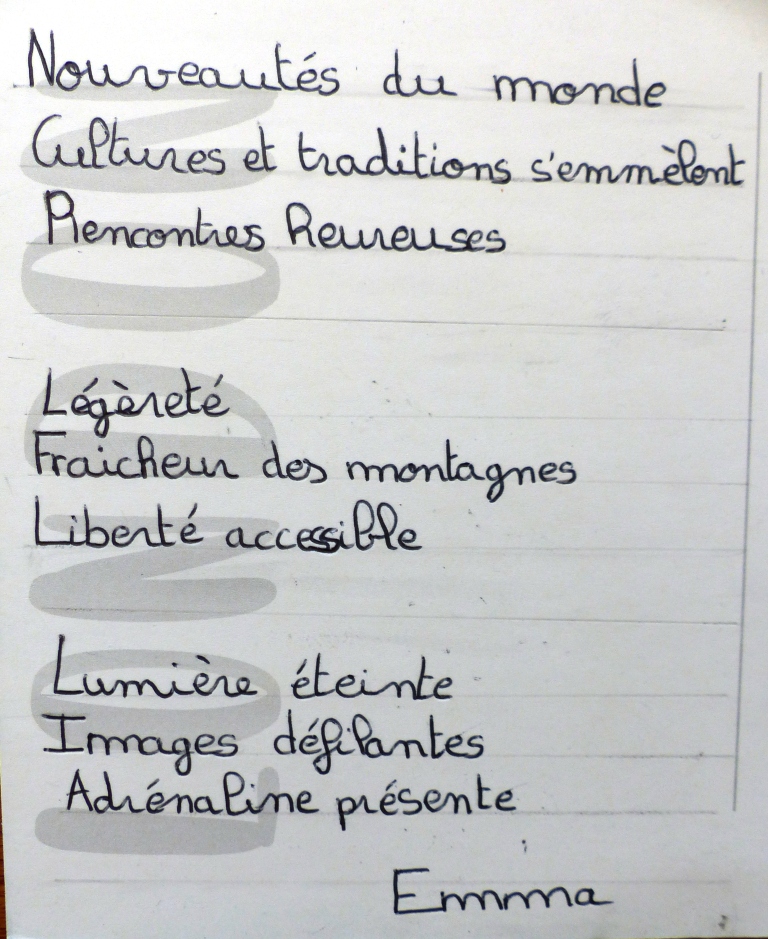 Nouveautés du monde
Cultures et traditions s'emmêlent
Rencontres heureuses
Légèreté
Fraicheur des montagnes
Liberté accessible
Lumière éteinte
Images défilantes
Adrénaline présente
Emma
LONDON